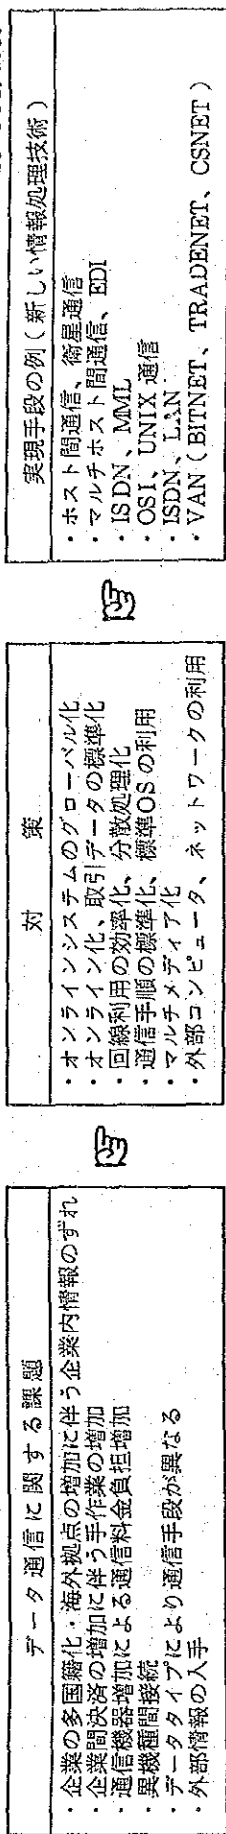 データ通信に関する課題
・企業の多国籍化・海外拠点の増加に伴う企業内情報のずれ
・企業間決済の増加に伴う手作業の増加
・通信機器増加による通信料金負担増加
・異機種間接続
・データタイプにより通信手段が異なる
・外部情報の入手
対策
・オンラインシステムのグローバル化
・オンライン化、取引データの標準化
・回線利用の効率化、分散処理化
・通信手順の標準化、標準OSの利用
・マルチメディア化
・外部コンピュータ、ネットワークの利用
実現手段の例(新しい情報処理技術)
・ホスト間通信、衛星通信
・マルチホスト間通信、EDI
・ISDN、MML
・OSI、UNIX通信
・ISDN、LAN
・VAN(BITNET、TRADENET、CSNET)